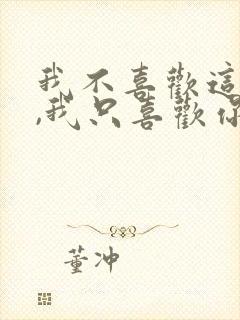 我不喜歡這
,我只喜歡你
董冲